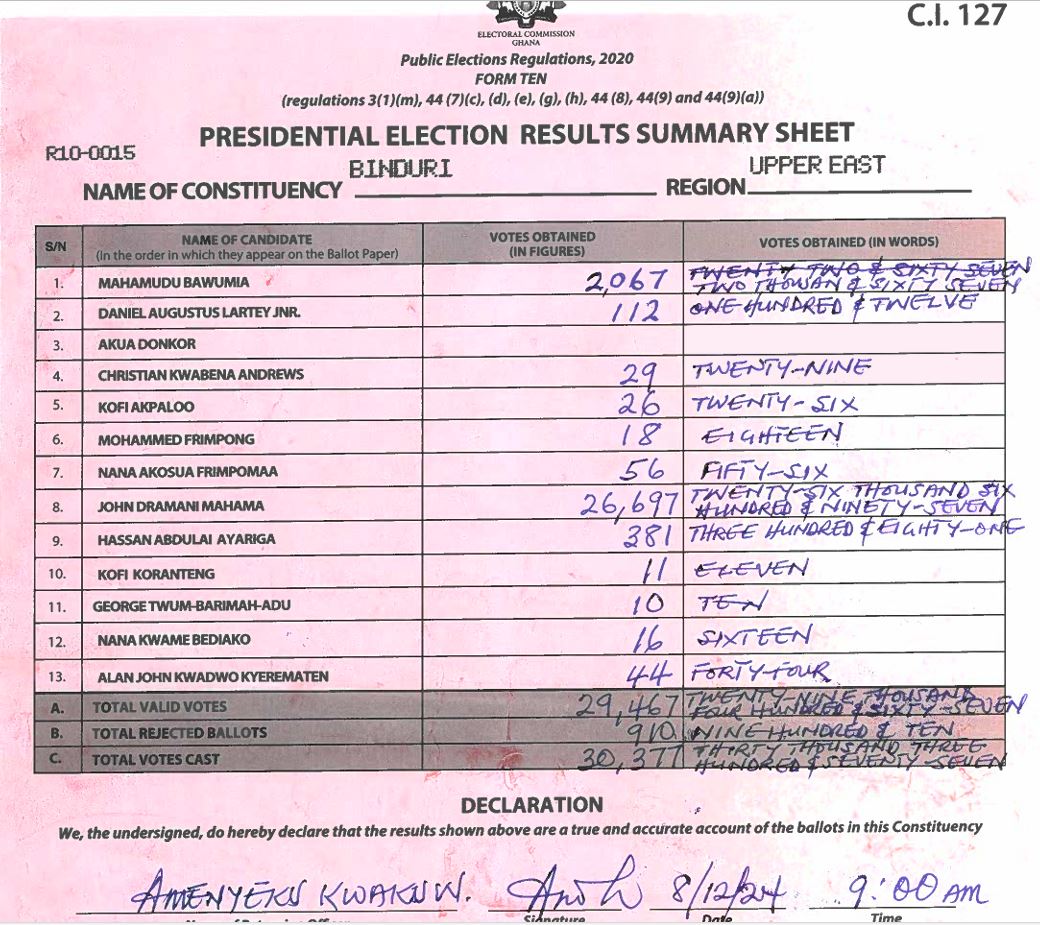 C.I. 127
ELECTORAL COMMISSION
GHANA
Public Elections Regulations, 2020
FORM TEN
(regulations 3(1)(m), 44 (7)(c), (d), (e), (g), (h), 44 (8), 44(9) and 44(9)(a))
PRESIDENTIAL ELECTION RESULTS SUMMARY SHEET
R10-0015
NAME OF CONSTITUENCY BINDURI REGION UPPER EAST
S/N NAME OF CANDIDATE (In the order in which they appear on the Ballot Paper) VOTES OBTAINED (IN FIGURES) VOTES OBTAINED (IN WORDS)
1. MAHAMUDU BAWUMIA 2,067 TWENTY TWO & SIXTY SEVEN
TWO THOUAN & SIXTY SEVEN
2. DANIEL AUGUSTUS LARTEY JNR. 112 ONE HUNDRED & TWELVE
3. AKUA DONKOR
4. CHRISTIAN KWABENA ANDREWS 29 TWENTY-NINE
5. KOFI AKPALOO 26 TWENTY-SIX
6. MOHAMMED FRIMPONG 18 EIGHTEEN
7. NANA AKOSUA FRIMPOMAA 56 FIFTY-SIX
8. JOHN DRAMANI MAHAMA 26,697 TWENTY-SIX THOUSAND SIX
HUNDRED & NINETY-SEVEN
9. HASSAN ABDULAI AYARIGA 381 THREE HUNDRED & EIGHTY-ONE
10. KOFI KORANTENG 11 ELEVEN
11. GEORGE TWUM-BARIMAH-ADU 10 TEN
12. NANA KWAME BEDIAKO 16 SIXTEEN
13. ALAN JOHN KWADWO KYEREMATEN 44 FORTY-FOUR
A. TOTAL VALID VOTES 29,467 TWENTY-NINE THOUSAND
FOUR HUNDRED & SIXTY-SEVEN
B. TOTAL REJECTED BALLOTS 910 NINE HUNDRED & TEN
C. TOTAL VOTES CAST 30,377 THIRTY THOUSAND THREE
HUNDRED & SEVENTY-SEVEN
DECLARATION
We, the undersigned, do hereby declare that the results shown above are a true and accurate account of the ballots in this Constituency
AMENYEKU KWAKU W. 8/12/24 9:00 AM
Signature Date Time